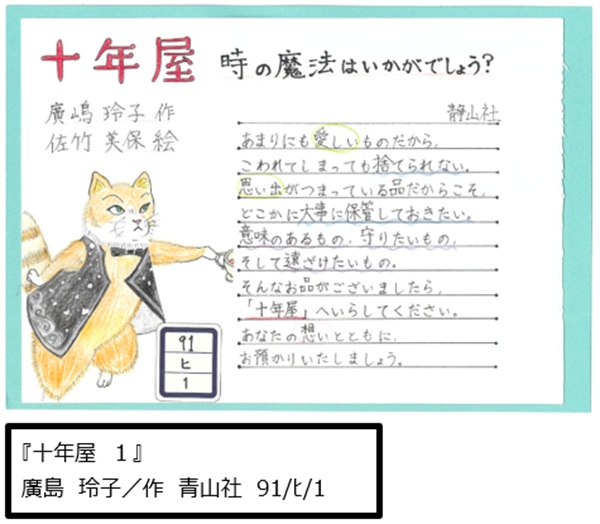 十年屋 時の魔法はいかがでしょう?
廣嶋 玲子 作
佐竹 美保 絵
静山社
あまりにも愛しいものだから、
こわれてしまっても捨てられない。
思い出がつまっている品だからこそ、
どこかに大事に保管しておきたい。
意味のあるもの、守りたいもの、
そして遠ざけたいもの。
そんなお品がございましたら、
「十年屋」へいらしてください。
あなたの想いとともに、
お預かりいたしましょう。
91
ヒ
1
『十年屋 1』
廣島 玲子/作 青山社 91/ヒ/1